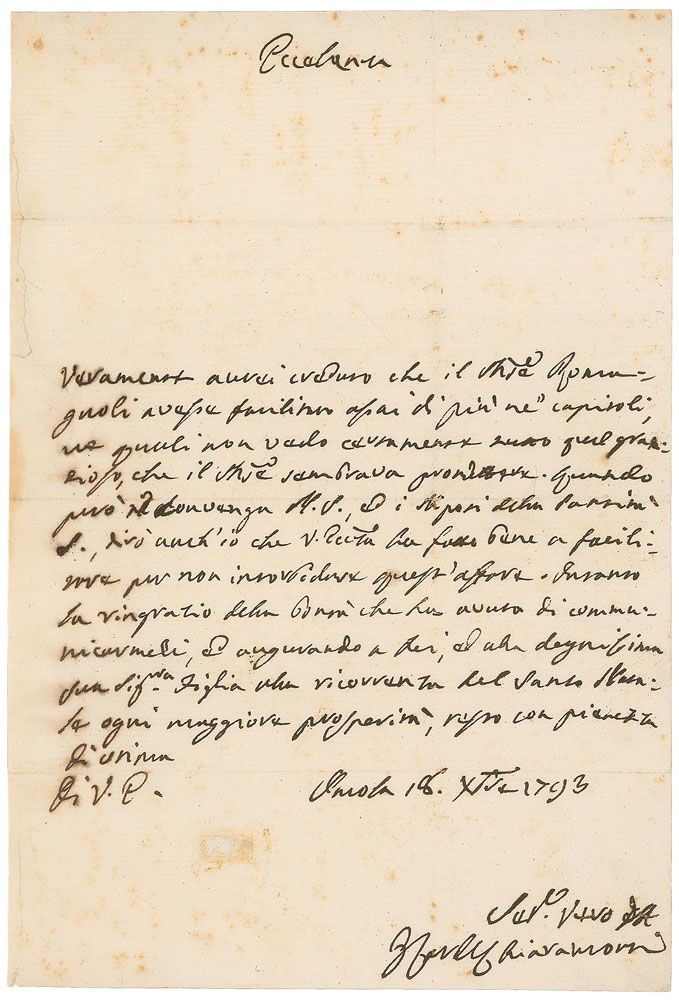 Eccelenza
Veramente avrei creduto che il March.e Roma=
gnoli avesse facilitato assai di più ne' capitoli,
ne quali non vedo certamente tutto quel gran=
dioso, che il March.e sembrava promettere. Quando
però convenga N. S., ed i Sposi della Santità
S., dirò anch'io che V. Ecc.za ha fatto bene a facili=
tare per non intorbidare quest'affare. Intanto
la ringratio della bontà che ha avuta di commu=
nicarmeli, ed augurando a Lei, ed alla degnissima
sua Sig.ra Figlia nella ricorrenza del Santo Nata=
le ogni maggiore prosperità, resto con pienezza
di stima
Di V. E.
Imola 18. Xbre 1793
Ser.e vero
Chiaramonti